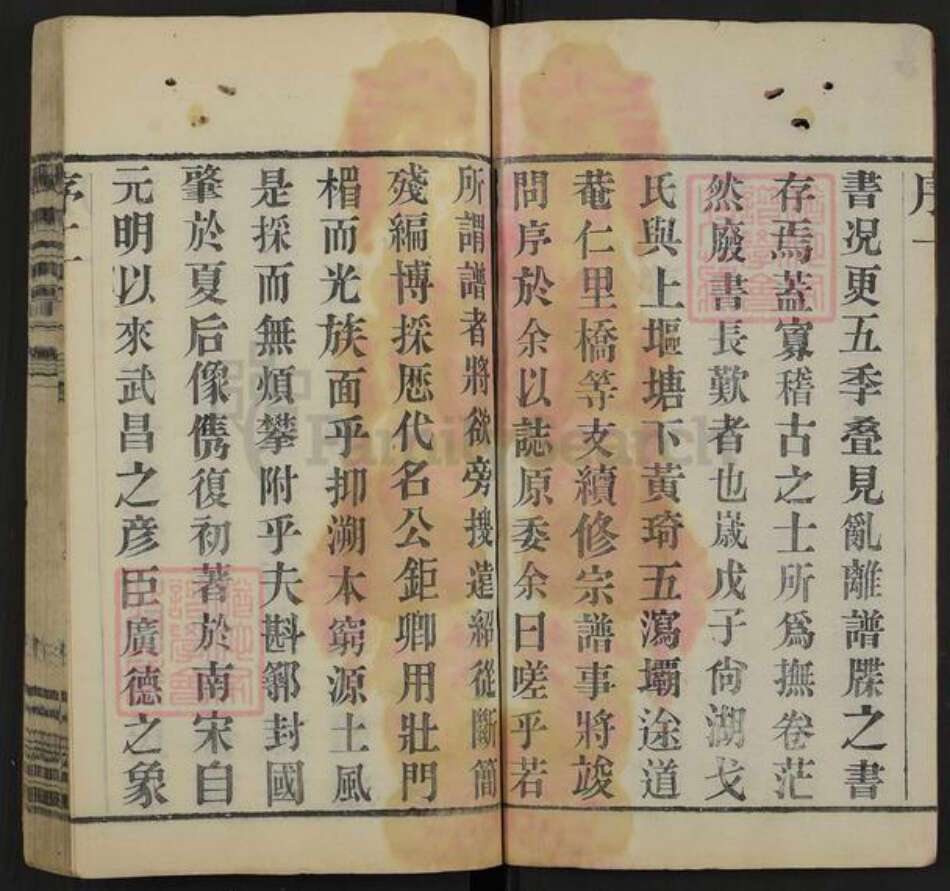 序一
書况更五季叠見亂離譜牒之書
存焉蓋寡稽古之士所爲撫卷茫
然廢書長歎者也嵗戊子尙湖戈
氏與上堰塘下黃琦五瀉壩途道
菴仁里橋等支續修宗譜事將竣
問序於余以誌原委余曰嗟乎若
所謂譜者將欲旁搜遠紹從斷簡
殘編博採厯代名公鉅卿用壯門
楣而光族面乎抑溯本窮源土風
是採而無煩攀附乎夫斟鄩封國
肇於夏后像儁復初著於南宋自
元明以來武昌之彥臣廣德之象
FamilySearch